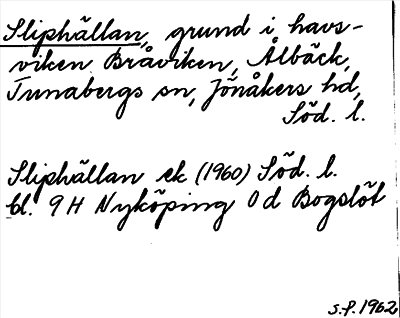 Sliphällan, grund i havs-
viken Bråviken, Ålbäck,
Tunabergs sn, Jönåkers hd,
Söd. l.
Sliphällan ek (1960) Söd. l.
bl. 9 H Nyköping 0 d Bogslöt
s.f. 1962